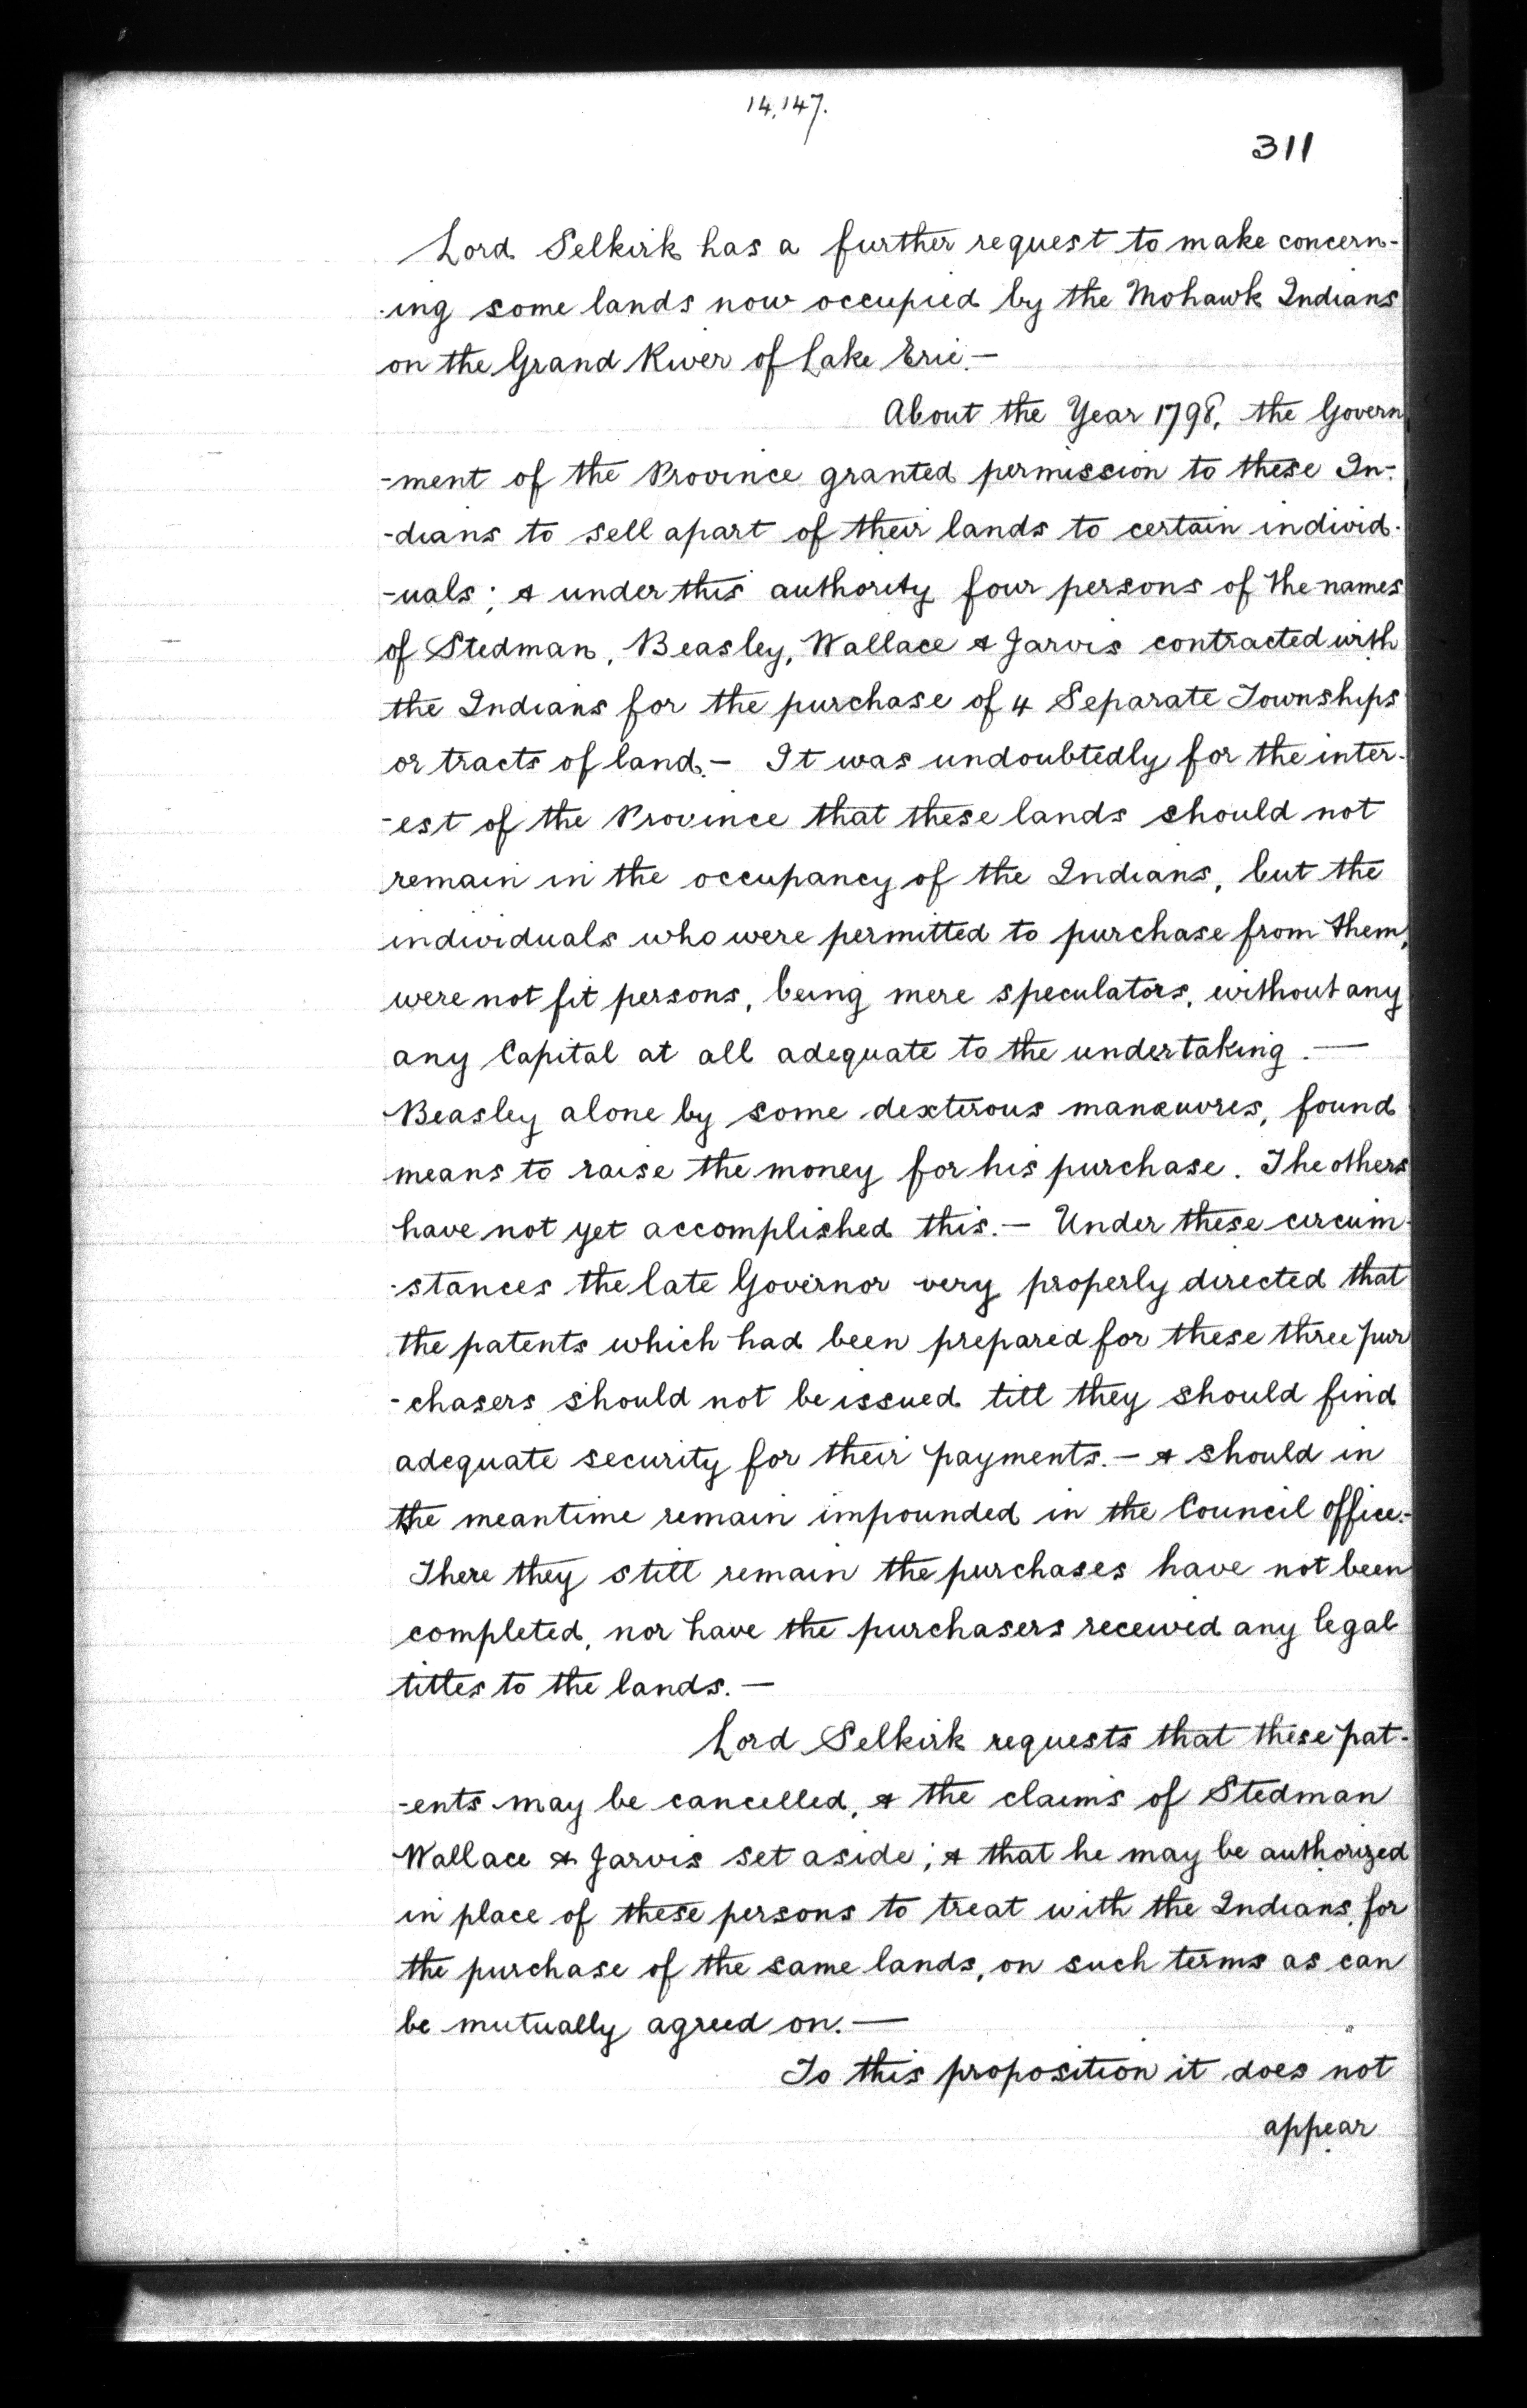 14,147.
311
Lord Selkirk has a further request to make concern-
-ing some lands now occupied by the Mohawk Indians
on the Grand River of Lake Erie.—
About the Year 1798, the Govern
-ment of the Province granted permission to these In-
-dians to sell apart of their lands to certain individ-
-uals; & under this authority four persons of the names
of Stedman, Beasley, Wallace & Jarvis contracted with
the Indians for the purchase of 4 Separate Townships
or tracts of land.— It was undoubtedly for the inter-
-est of the Province that these lands should not
remain in the occupancy of the Indians, but the
individuals who were permitted to purchase from them,
were not fit persons, being mere speculators, without any
any Capital at all adequate to the undertaking.—
Beasley alone by some dexterous manœuvres, found
means to raise the money for his purchase. The others
have not yet accomplished this.— Under these circum-
-stances the late Governor very properly directed that
the patents which had been prepared for these three pur
-chasers should not be issued till they should find
adequate security for their payments.— & should in
the meantime remain impounded in the Council Office.-
There they still remain the purchases have not been
completed, nor have the purchasers received any legal
titles to the lands.—
Lord Selkirk requests that these pat-
-ents may be cancelled, & the claims of Stedman
Wallace & Jarvis set aside; & that he may be authorized
in place of these persons to treat with the Indians, for
the purchase of the same lands, on such terms as can
be mutually agreed on.—
To this proposition it does not
appear